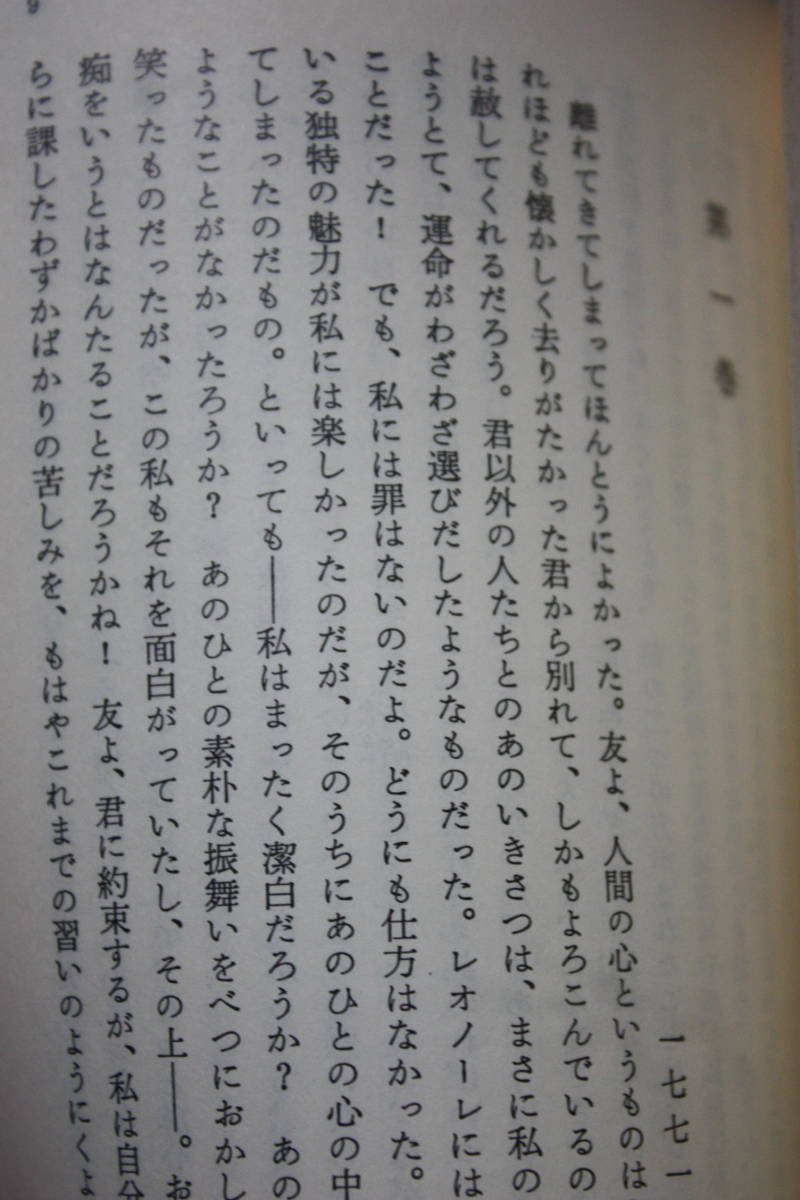 9
第一巻
一七七一
離れてきてしまってほんとうによかった。友よ、人間の心というものは
れほども懐かしく去りがたかった君から別れて、しかもよろこんでいるの
は赦してくれるだろう。君以外の人たちとのあのいきさつは、まさに私の
ようとて、運命がわざわざ選びだしたようなものだった。レオノーレには
ことだった！　でも、私には罪はないのだよ。どうにも仕方はなかった。
いる独特の魅力が私には楽しかったのだが、そのうちにあのひとの心の中
てしまったのだもの。といっても――私はまったく潔白だろうか？　あの
ようなことがなかったろうか？　あのひとの素朴な振舞いをべつにおかし
笑ったものだったが、この私もそれを面白がっていたし、その上――。お
痴をいうとはなんたることだろうかね！　友よ、君に約束するが、私は自分
らに課したわずかばかりの苦しみを、もはやこれまでの習いのようにくよ